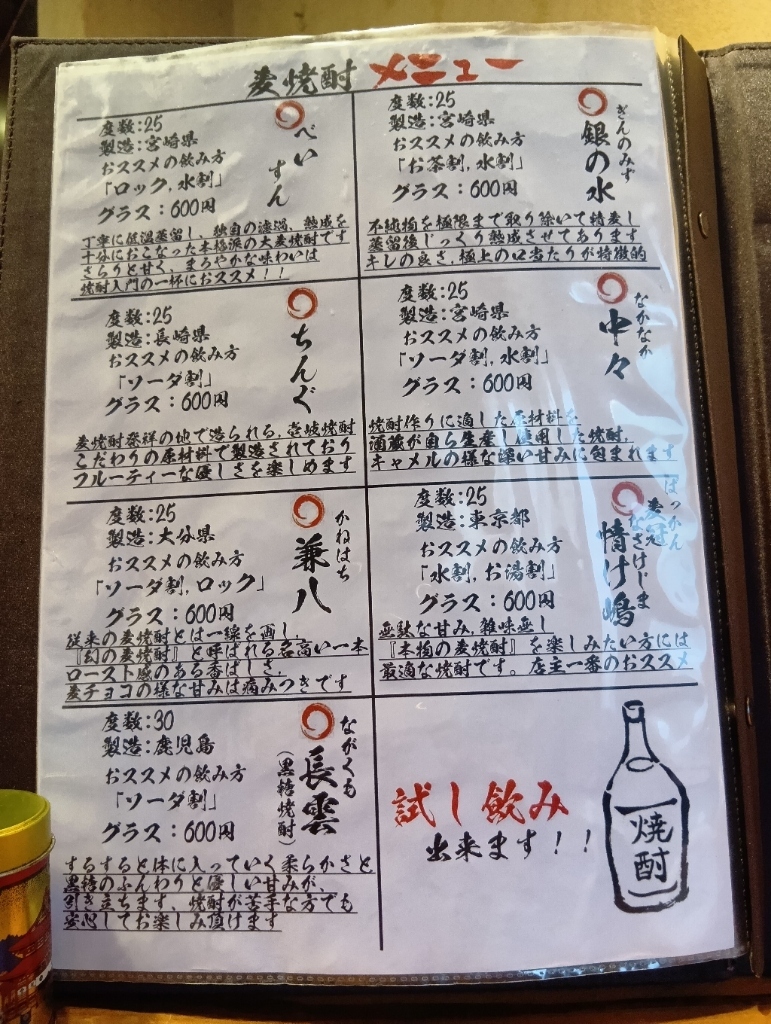 麦焼酎 メニュー
度数:25
製造:宮崎県
おススメの飲み方
「ロック,水割」
グラス:600円
べいすん
丁寧に低温蒸留し、独自の濾過、熟成を
十分におこなった本格派の大麦焼酎です
さらりと甘く、まろやかな味わいは
焼酎入門の一杯におススメ!!
度数:25
製造:宮崎県
おススメの飲み方
「お茶割,水割」
グラス:600円
ぎんのみず
銀の水
不純物を極限まで取り除いて精麦し
蒸留後じっくり熟成させております
キレの良さ,極上の口当たりが特徴的
度数:25
製造:長崎県
おススメの飲み方
「ソーダ割」
グラス:600円
ちんぐ
麦焼酎発祥の地で造られる,壱岐焼酎
こだわりの原材料で製造されており
フルーティーな優しさを楽しめます
度数:25
製造:宮崎県
おススメの飲み方
「ソーダ割,水割」
グラス:600円
なかなか
中々
焼酎作りに適した原材料を
酒蔵が自ら生産し使用した焼酎,
キャメルの様な深い甘みに包まれます
度数:25
製造:大分県
おススメの飲み方
「ソーダ割,ロック」
グラス:600円
かねはち
兼八
従来の麦焼酎とは一線を画し,
『幻の麦焼酎』と呼ばれる名高い一本
ロースト感のある香ばしさ,
麦チョコの様な甘みは病みつきです
度数:25
製造:東京都
おススメの飲み方
「水割,お湯割」
グラス:600円
ばっかん
麦冠
なさけじま
情け嶋
無駄な甘み,雑味無し
『本物の麦焼酎』を楽しみたい方には
最適な焼酎です。店主一番のおススメ
度数:30
製造:鹿児島
おススメの飲み方
「ソーダ割」
グラス:600円
ながくも
長雲
(黒糖焼酎)
するすると体に入っていく柔らかさと,
黒糖のふんわりと優しい甘みが、
引き立ちます、焼酎が苦手な方でも
安心してお楽しみ頂けます
試し飲み
出来ます!!
焼酎